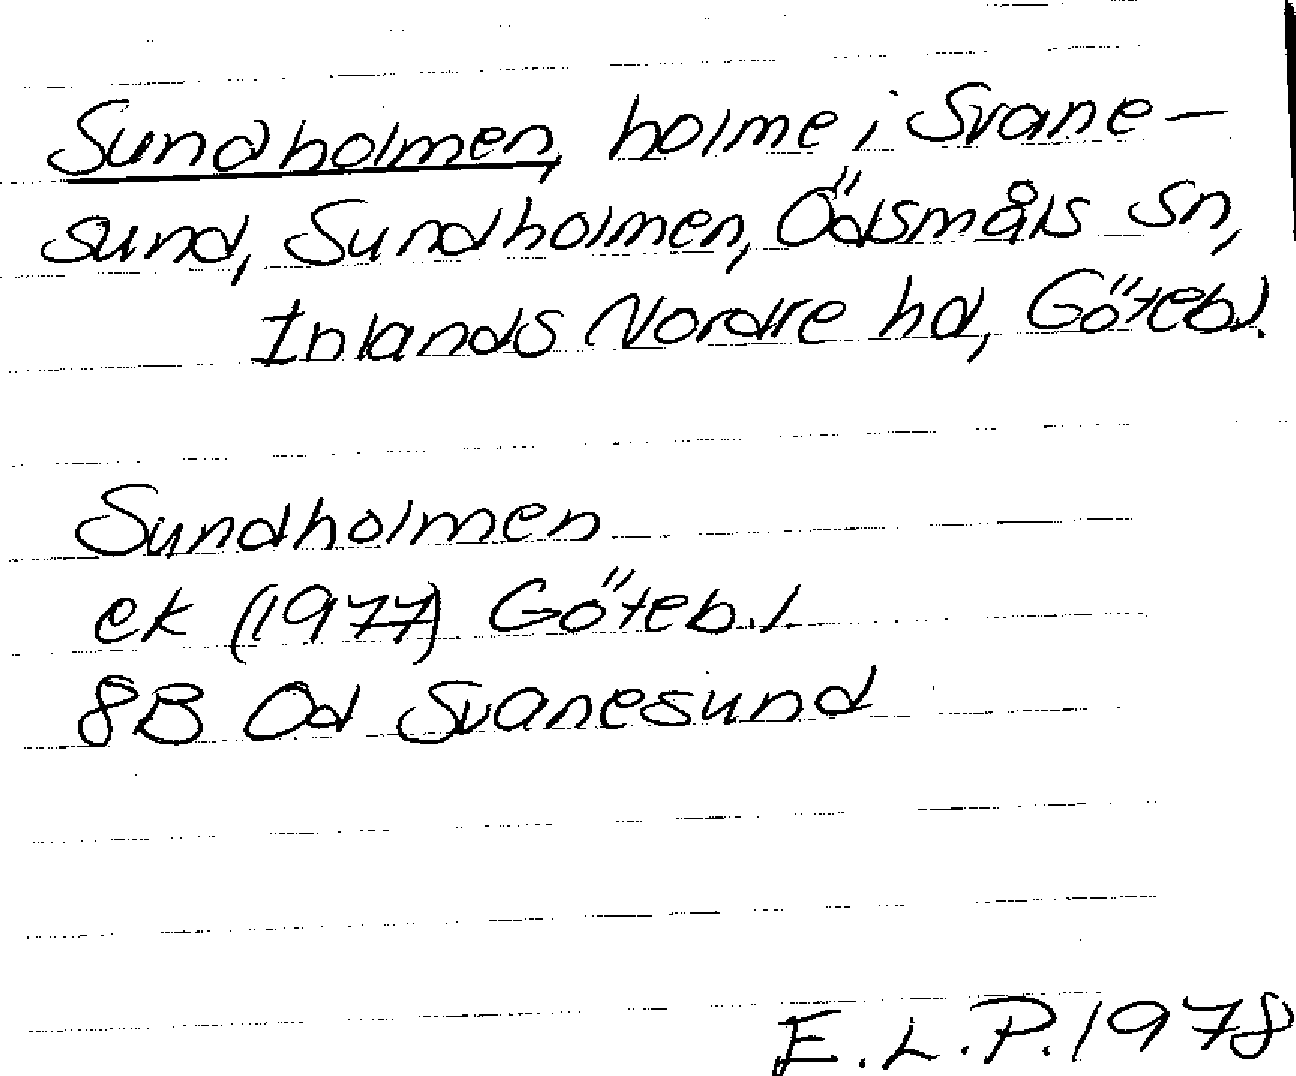 Sundholmen, holme i Svane-
sund, Sundholmen, Ödsmåls sn,
Inlands Nordre hd, Göteb.l.
Sundholmen
ek (1977) Göteb.l
8B Od Svanesund
E.L.P. 1978